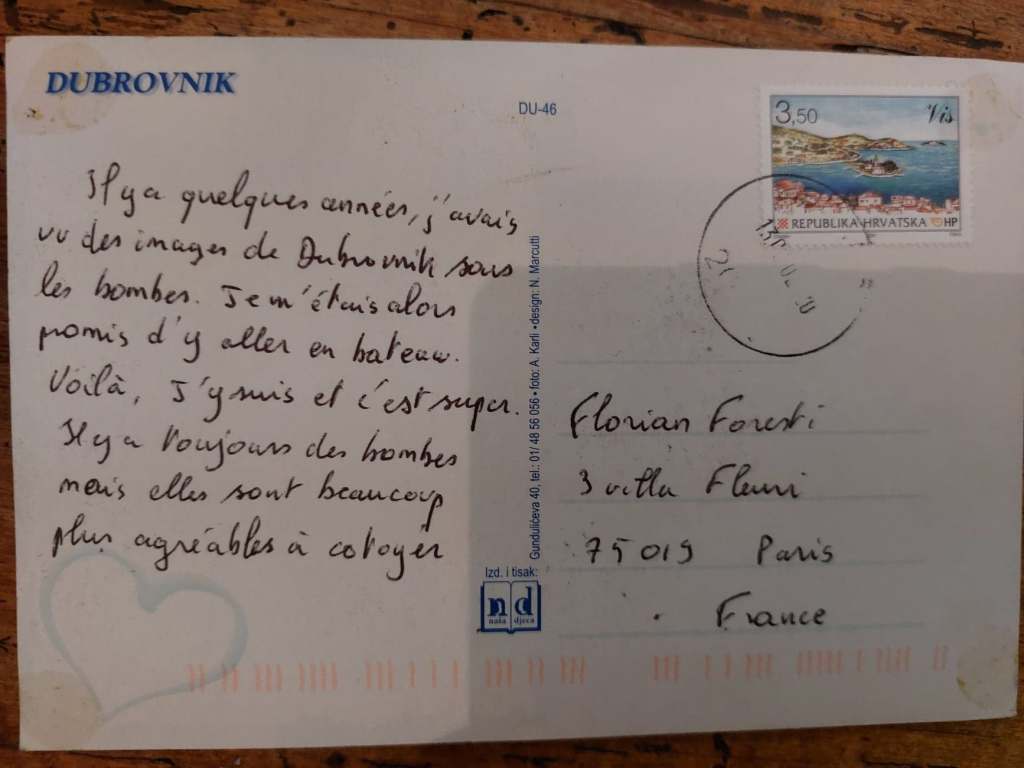 DUBROVNIK
DU-46
Il y a quelques années, j'avais
vu des images de Dubrovnik sous
les bombes. Je m'étais alors
promis d'y aller en bateau.
Voilà, J'y suis et c'est super.
Il y a toujours des bombes
mais elles sont beaucoup
plus agréables à cotoyer
3,50
Vis
REPUBLIKA HRVATSKA HP
Gundulićeva 40, tel.: 01/ 48 56 056 • foto: A. Karli • design: N. Marcutti
Izd. i tisak:
nd
naša djeca
Florian Foresti
3 villa Fleuri
75019 Paris
France